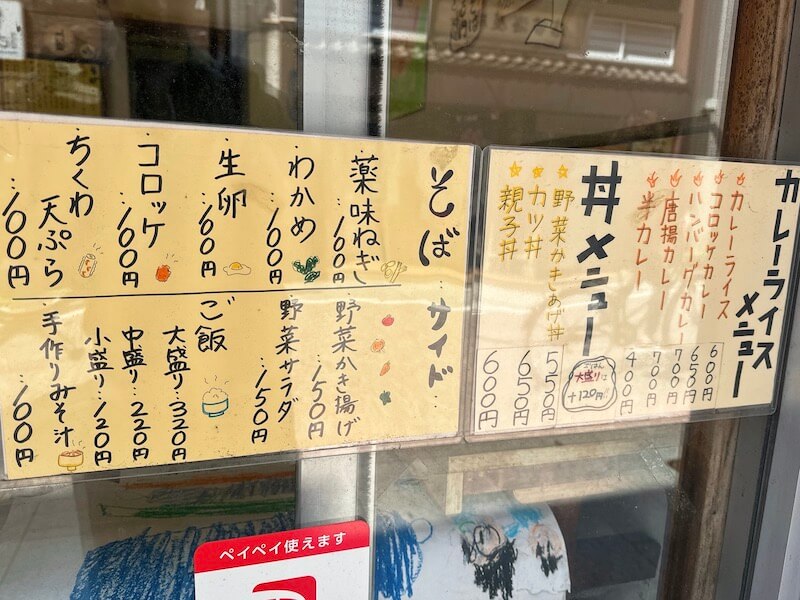 そば・サイド
薬味ねぎ…100円
わかめ…100円
生卵…100円
コロッケ…100円
ちくわ
天ぷら…100円
野菜かき揚げ…150円
野菜サラダ…150円
ご飯
大盛り…320円
中盛り…220円
小盛り…120円
手作りみそ汁…100円
カレーライス
メニュー
カレーライス 600円
コロッケカレー 650円
ハンバーグカレー 700円
唐揚カレー 700円
半カレー 400円
ごはん
大盛りは
+120円!!
丼メニュー
野菜かきあげ丼 550円
カツ丼 650円
親子丼 600円
ペイペイ使えます